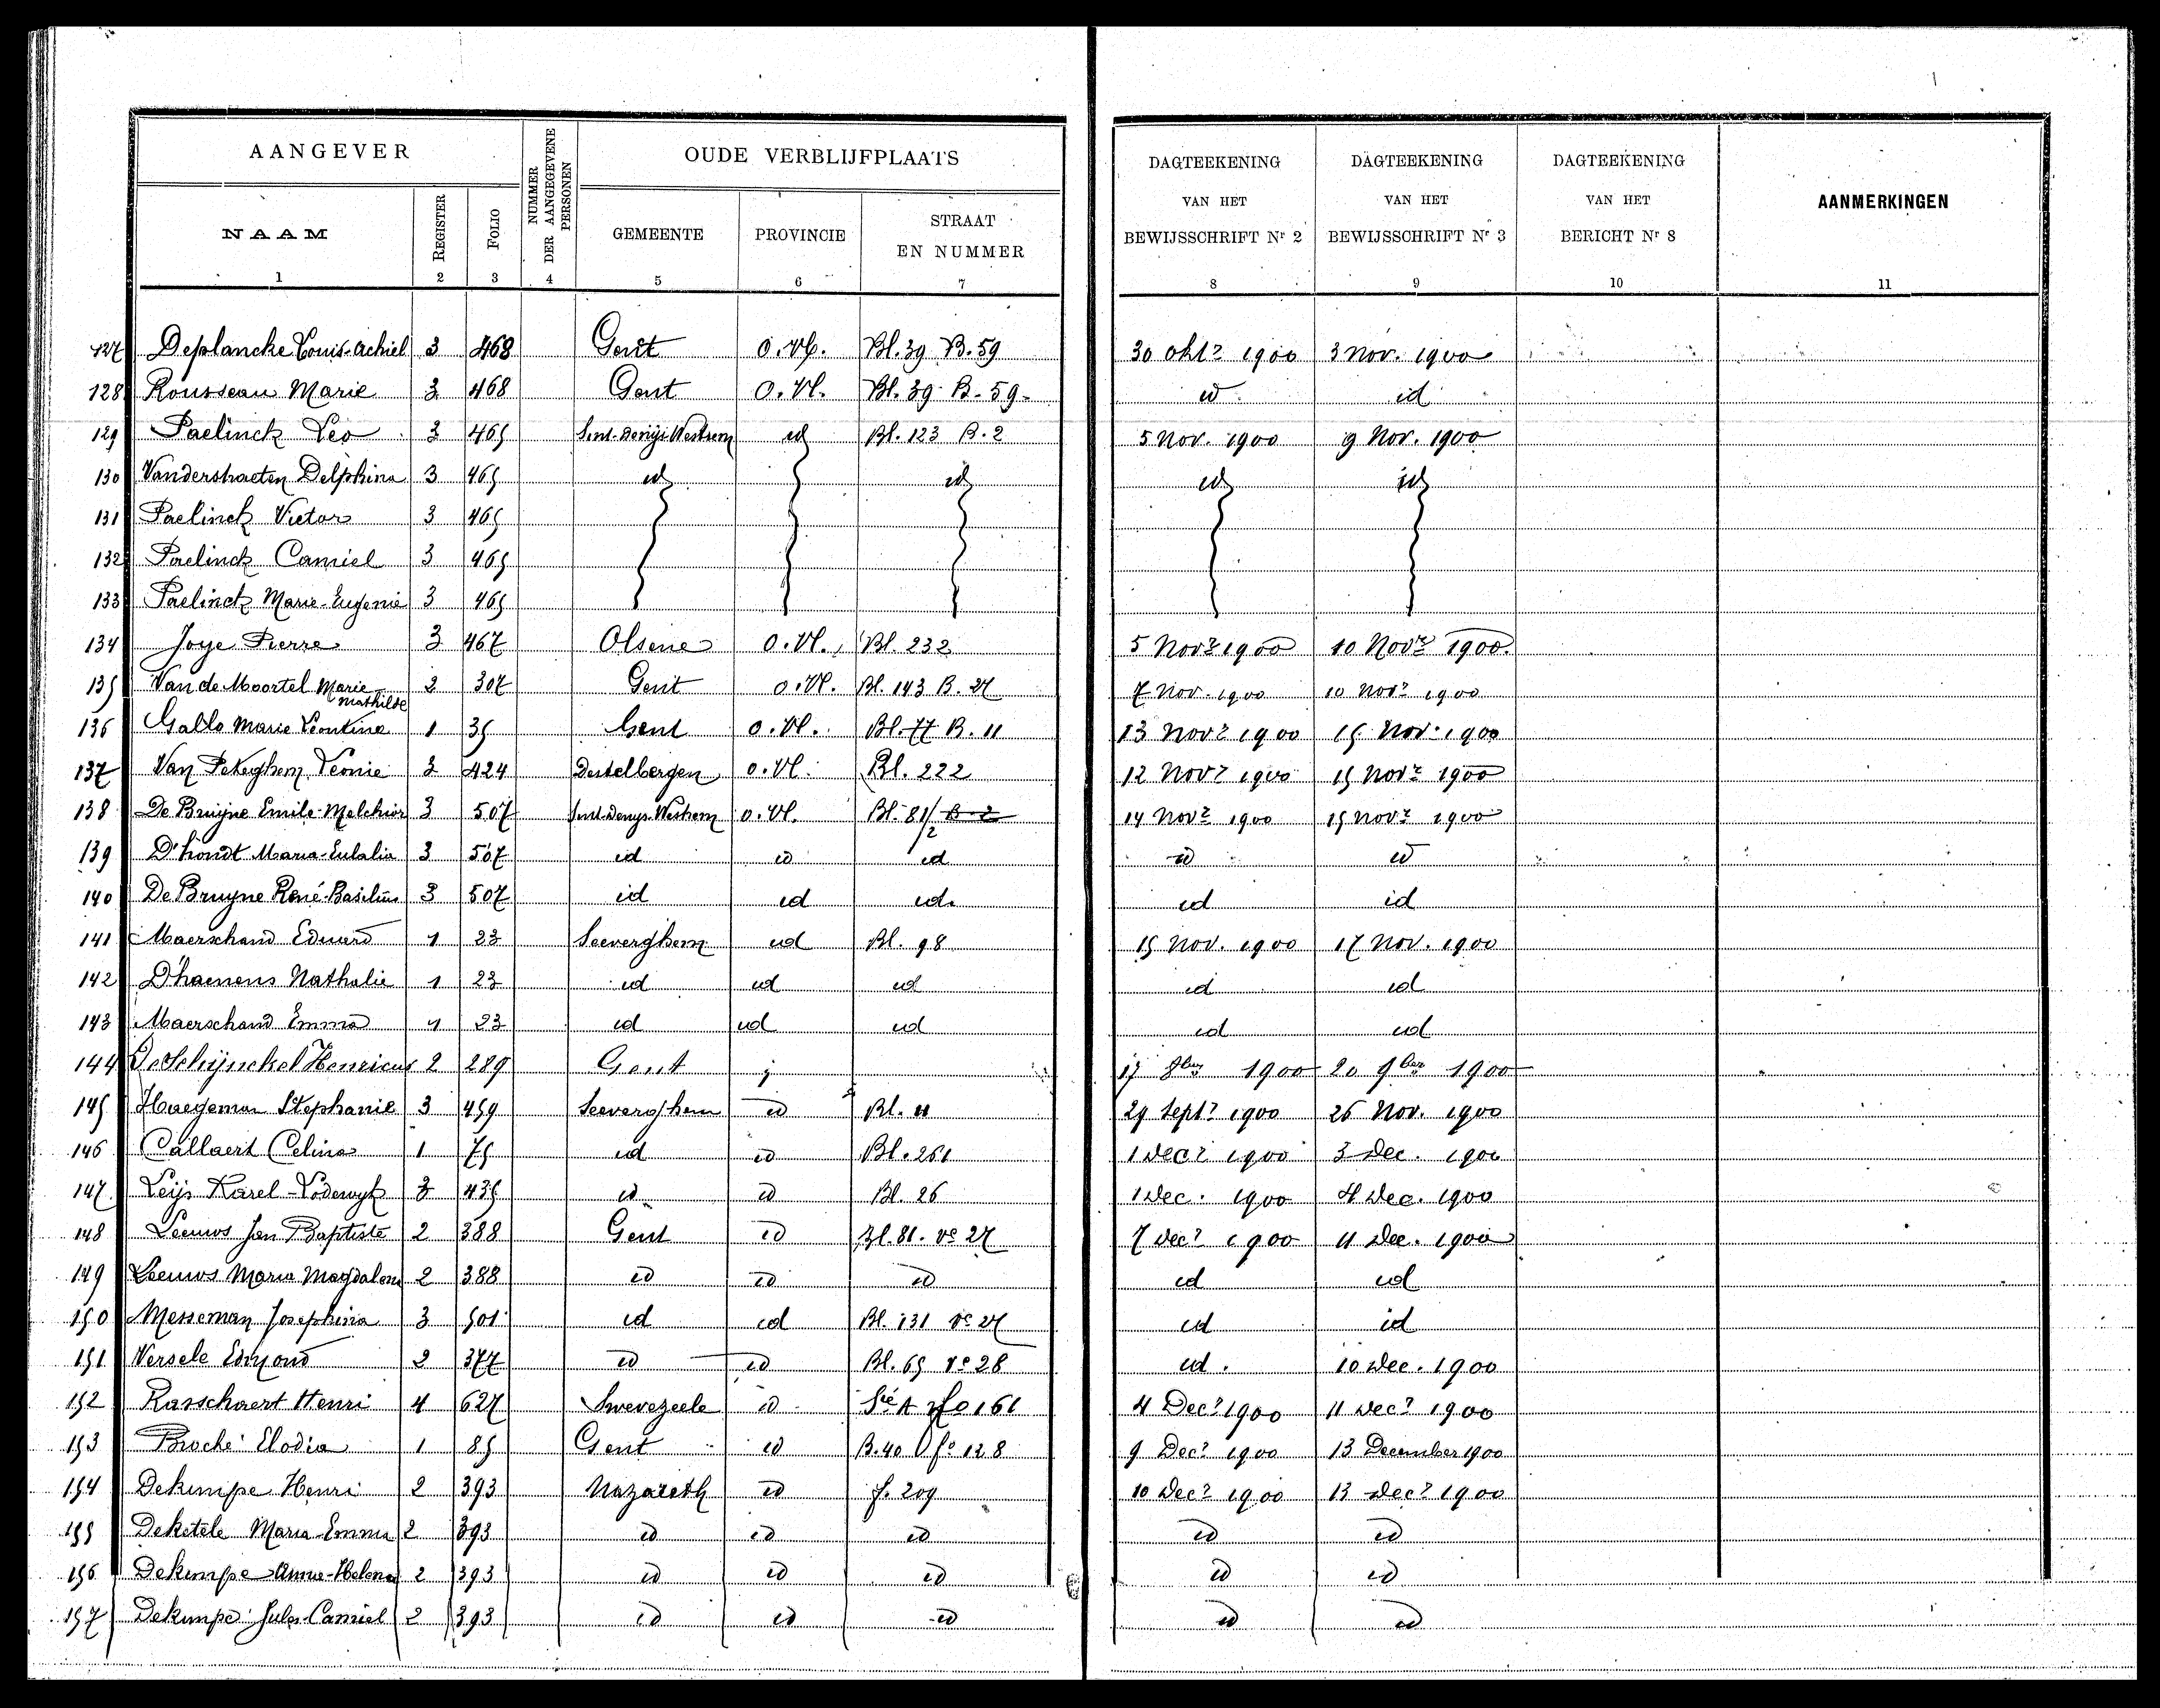 AANGEVER
NUMMER DER AANGEGEVENE PERSONEN
OUDE VERBLIJFPLAATS
DAGTEEKENING VAN HET BEWIJSSCHRIFT Nr 2
DAGTEEKENING VAN HET BEWIJSSCHRIFT Nr 3
DAGTEEKENING VAN HET BERICHT Nr 8
AANMERKINGEN
NAAM REGISTER FOLIO GEMEENTE PROVINCIE STRAAT EN NUMMER
1 2 3 4 5 6 7 8 9 10 11
127 Deplancke Louis-Achiel 3 468 Gent O.Vl. Bl. 39 B. 59 30 Okt. 1900 3 Nov. 1900
128 Rousseau Marie 3 468 Gent O.Vl. Bl. 39 B. 59 id id
129 Paelinck Leo 3 465 Sint-Denijs-Westrem id Bl. 123 B. 2 5 Nov. 1900 9 Nov. 1900
130 Vanderstraeten Delphina 3 465 id id id id
131 Paelinck Victor 3 465
132 Paelinck Camiel 3 465
133 Paelinck Marie-Eugenie 3 465
134 Joye Pierre 3 467 Olsene O.Vl. Bl. 232 5 Nov. 1900 10 Nov. 1900
135 Van de Moortel Marie Mathilde 2 307 Gent O.Vl. Bl. 143 B. 27 7 Nov. 1900 10 Nov. 1900
136 Gallo Marie Leontine 1 35 Gent O.Vl. Bl. 77 B. 11 13 Nov. 1900 15 Nov. 1900
137 Van Peteghem Leonie 3 424 Destelbergen O.Vl. Bl. 222 12 Nov. 1900 15 Nov. 1900
138 De Bruijne Emile-Melchior 3 507 Sint-Denys-Westrem O.Vl. Bl. 81/2 B. 2 14 Nov. 1900 15 Nov. 1900
139 D'hondt Maria-Eulalia 3 507 id id id id id
140 De Bruyne René-Basilius 3 507 id id id. id id
141 Maerschand Eduard 1 23 Seeverghem id Bl. 98 15 Nov. 1900 17 Nov. 1900
142 D'haenens Nathalie 1 23 id id id id id
143 Maerschand Emma 1 23 id id id id id
144 De Schijnckel Henricus 2 289 Gent 17 8ber 1900 20 9ber 1900
145 Haegeman Stephanie 3 459 Seeverghem id Bl. 11 29 Sept. 1900 26 Nov. 1900
146 Callaert Celina 1 75 id id Bl. 261 1 Dec. 1900 3 Dec. 1900
147 Leijs Karel-Lodewyk 3 435 id id Bl. 26 1 Dec. 1900 4 Dec. 1900
148 Leeuws Jan Baptiste 2 388 Gent id Bl. 81. Ve 27 7 Dec. 1900 11 Dec. 1900
149 Leeuws Maria Magdalena 2 388 id id id id id
150 Messeman Josephina 3 501 id id Bl. 131 Ve 27 id id
151 Versele Edmond 2 377 id id Bl. 65 Ve 28 id. 10 Dec. 1900
152 Rasschaert Henri 4 627 Swevezeele id Sie A fo 161 4 Dec. 1900 11 Dec. 1900
153 Broché Elodia 1 85 Gent id B. 40 fo 128 9 Dec. 1900 13 December 1900
154 Dekimpe Henri 2 393 Nazareth id f. 209 10 Dec. 1900 13 Dec. 1900
155 Deketele Maria-Emma 2 393 id id id id id
156 Dekimpe Anna-Helena 2 393 id id id id id
157 Dekimpe Jules-Camiel 2 393 id id id id id